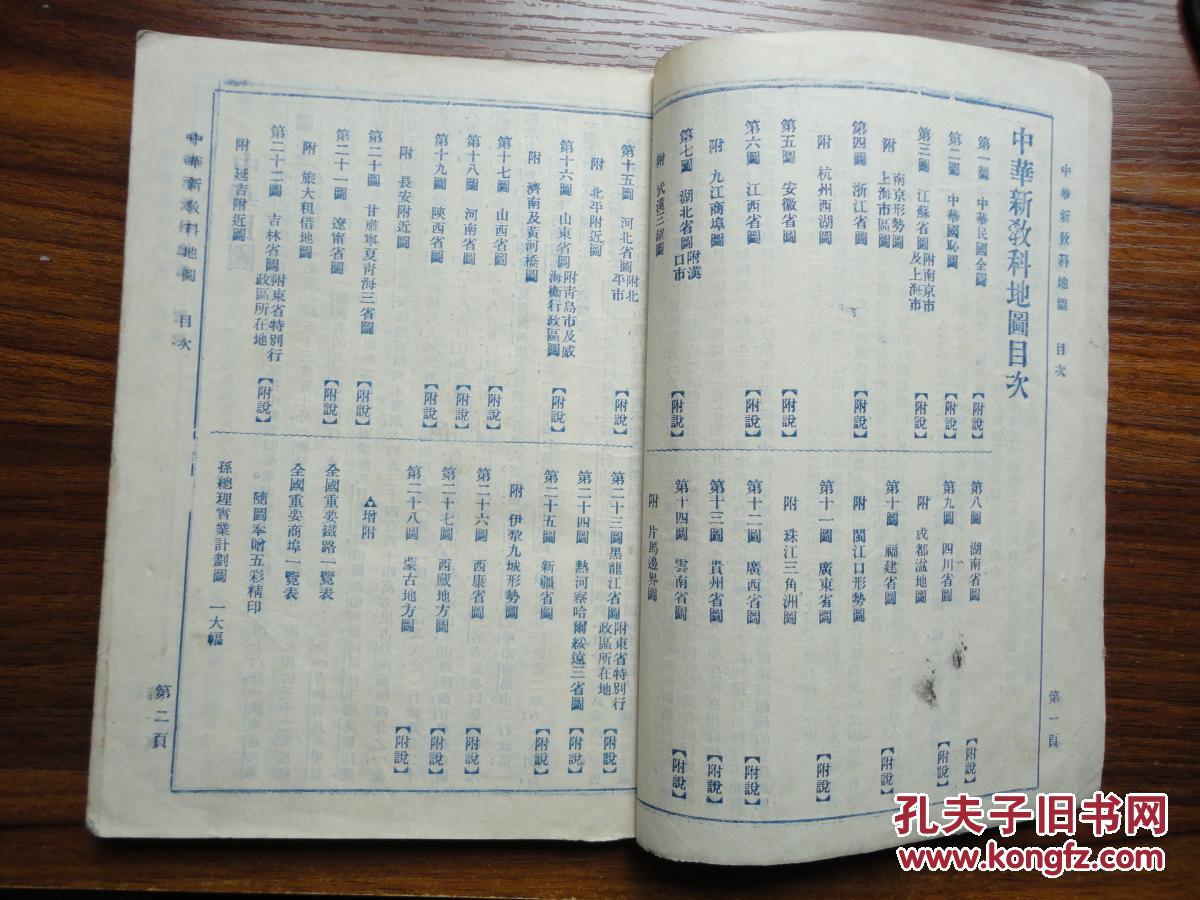 中華新敎科地圖 目次
第一頁
中華新敎科地圖目次
第一圖 中華民國全圖【附說】
第二圖 中華國恥圖【附說】
第三圖 江蘇省圖附南京市及上海市【附說】
附 南京形勢圖 上海市區圖
第四圖 浙江省圖【附說】
附 杭州西湖圖
第五圖 安徽省圖【附說】
第六圖 江西省圖【附說】
附 九江商埠圖
第七圖 湖北省圖附漢口市【附說】
附 武漢三鎭圖
第八圖 湖南省圖【附說】
第九圖 四川省圖【附說】
附 成都湓地圖
第十圖 福建省圖【附說】
附 閩江口形勢圖
第十一圖 廣東省圖【附說】
附 珠江三角洲圖
第十二圖 廣西省圖【附說】
第十三圖 貴州省圖【附說】
第十四圖 雲南省圖【附說】
附 片馬邊界圖
第十五圖 河北省圖附北平市【附說】
附 北平附近圖
第十六圖 山東省圖附靑島市及威海衞行政區圖【附說】
附 濟南及黃河橋圖
第十七圖 山西省圖【附說】
第十八圖 河南省圖【附說】
第十九圖 陝西省圖【附說】
附 長安附近圖
第二十圖 甘肅寧夏靑海三省圖【附說】
第二十一圖 遼甯省圖【附說】
附 旅大租借地圖
第二十二圖 吉林省圖附東省特別行政區所在地【附說】
附 延吉附近圖
第二十三圖黑龍江省圖附東省特別行政區所在地【附說】
第二十四圖 熱河察哈爾綏遠三省圖【附說】
第二十五圖 新疆省圖【附說】
附 伊犂九城形勢圖
第二十六圖 西康省圖【附說】
第二十七圖 西藏地方圖【附說】
第二十八圖 蒙古地方圖【附說】
增附
全國重要鐵路一覽表
全國重要商埠一覽表
隨圖奉贈五彩精印
孫總理實業計劃圖 一大幅
中華新敎科地圖 目次
第二頁
孔夫子旧书网
www.kongfz.com